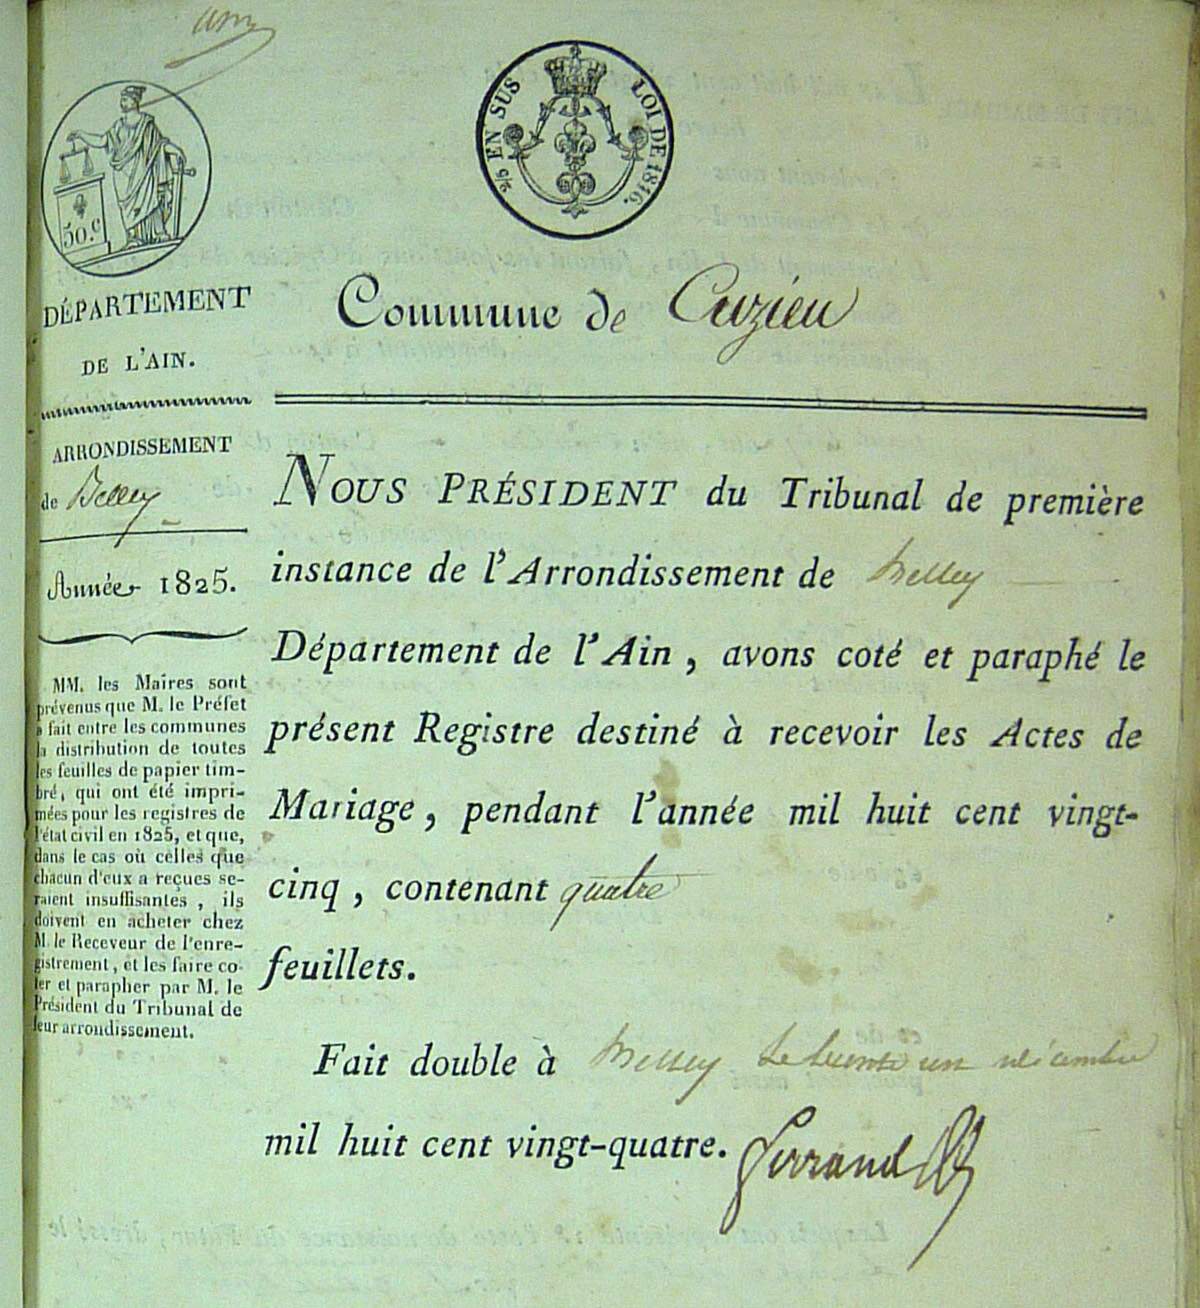 2/5 EN SUS
LOI DE 1816.
50.c
DÉPARTEMENT
DE L'AIN.
ARRONDISSEMENT
de Belley
Année 1825.
MM. les Maires sont
prévenus que M. le Préfet
a fait entre les communes
la distribution de toutes
les feuilles de papier tim-
bré, qui ont été impri-
mées pour les registres de
l'état civil en 1825, et que,
dans le cas où celles que
chacun d'eux a reçues se-
raient insuffisantes, ils
doivent en acheter chez
M. le Receveur de l'enre-
gistrement, et les faire co-
ter et parapher par M. le
Président du Tribunal de
leur arrondissement.
Commune de Cuzieu
NOUS PRÉSIDENT du Tribunal de première
instance de l'Arrondissement de Belley
Département de l'Ain, avons coté et paraphé le
présent Registre destiné à recevoir les Actes de
Mariage, pendant l'année mil huit cent vingt-
cinq, contenant quatre
feuillets.
Fait double à Belley le trente un décembre
mil huit cent vingt-quatre. Ferrand